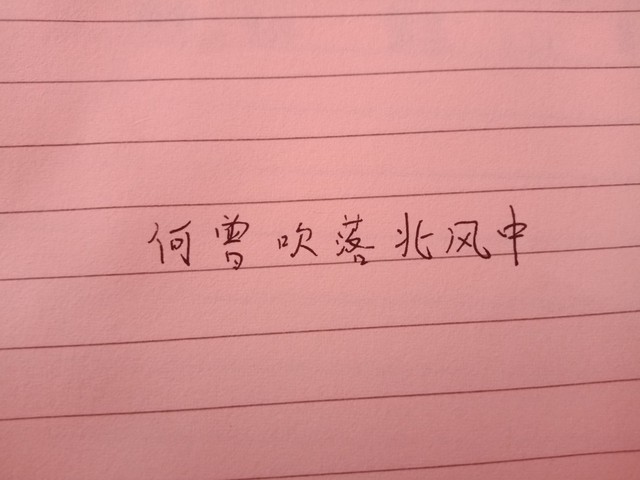 何曾吹落北风中